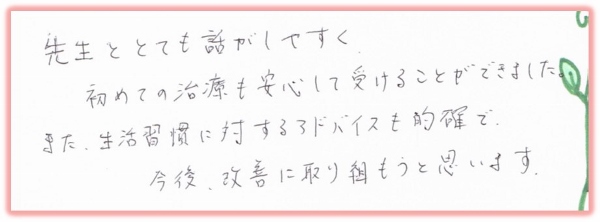 先生ととても話がしやすく
初めての治療も安心して受けることができました。
また、生活習慣に対するアドバイスも的確で、
今後、改善に取り組もうと思います。